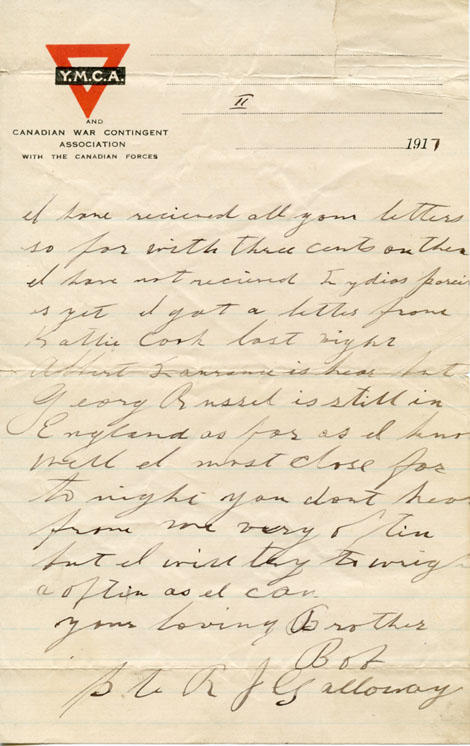 Y.M.C.A.
AND
CANADIAN WAR CONTINGENT
ASSOCIATION
WITH THE CANADIAN FORCES
II
1917
I have recieved all your letters
so far with three cents on them
I have not recieved Lydias parcel
as yet I got a letter from
Kattie Cook last night
Albert Lawrance is hear but
Georg Russel is still in
England as far as I know
Well I most close for
to night you dont hear
from me very oftin
but I will try to wrigh
a oftin as I can
your loving Brother
Bob
Pte R J Galloway